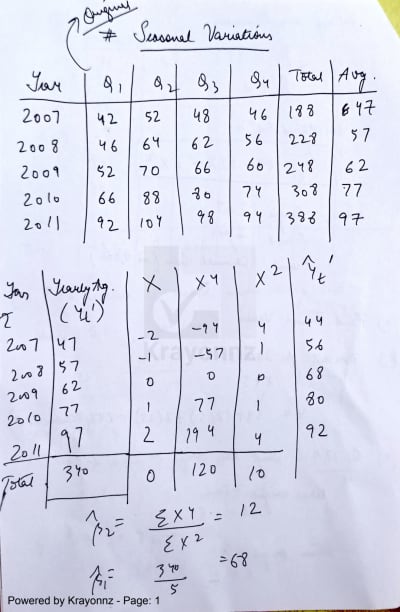 Original
# Seasonal Variations
Year Q1 Q2 Q3 Q4 Total Avg.
2007 42 52 48 46 188 47
2008 46 64 62 56 228 57
2009 52 70 66 60 248 62
2010 66 88 80 74 308 77
2011 92 104 98 94 388 97
Year Yearly Avg. X XY X² Ŷt'
τ (Yt')
2007 47 -2 -94 4 44
2008 57 -1 -57 1 56
2009 62 0 0 0 68
2010 77 1 77 1 80
2011 97 2 194 4 92
Total 340 0 120 10
β̂2 = ΣXY / ΣX² = 12
β̂1 = 340 / 5 = 68
Krayonnz
Powered by Krayonnz - Page: 1